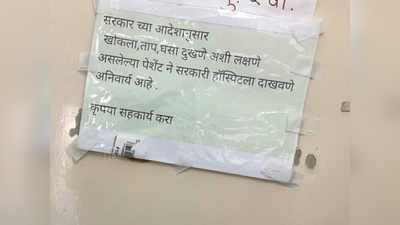 सरकार च्या आदेशानुसार
खोकला,ताप,घसा दुखणे अशी लक्षणे
असलेल्या पेशंट ने सरकारी हॉस्पिटला दाखवणे
अनिवार्य आहे .
कृपया सहकार्य करा